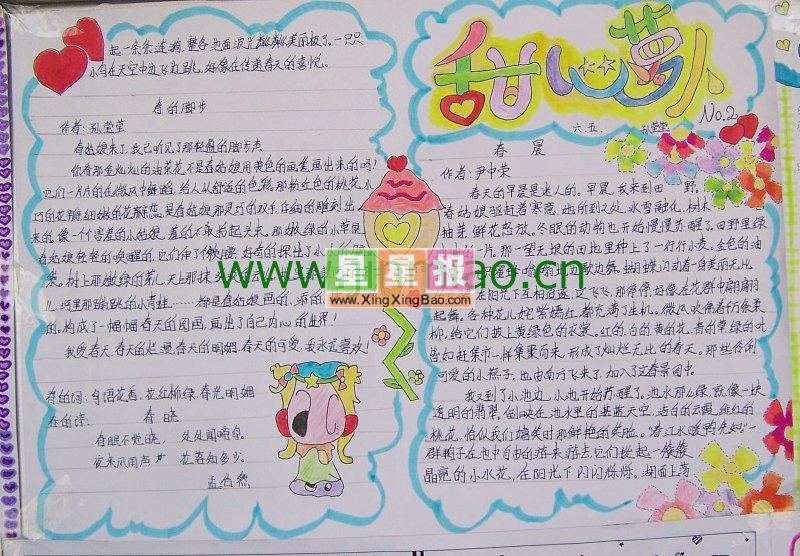 起一条条连漪,整各池面波光粼粼美丽极了。一只只
小鸟在天空中边飞边跳,好像在传递春天的喜悦。
春的脚步
作者:孙莹莹
春姑娘来了,我已听见了那轻盈的脚步声。
你看那金灿灿的油菜花,不是春姑娘用黄色的画笔画出来的吗?
它们一片片的在微风中舞蹈,给人以舒适的色彩,那粉红色的桃花,小
巧的花瓣,细嫩的花蕊,是春姑娘那灵巧的双手,仔细的雕刻出
来的,像一个害羞的小姑娘,羞的不敢抬起头来。那嫩绿的小草是
春姑娘轻轻的唤醒的,它们伸了伸懒腰,好奇的探出了小
树上那嫩绿的芽儿,天上那抹
儿,河里那蹦跳的小青蛙……都是春姑娘画的,添的
的。构成了一幅幅春天的图画,画出了自己内心的世界!
我爱春天,春天的烂漫,春天的明媚,春天的可爱,我永远喜欢!
春的词:鸟语花香,花红柳绿,春光明媚
春的诗: 春晓
春眠不觉晓, 处处闻啼鸟。
夜来风雨声, 花落知多少。
孟浩然
甜心萝人
No.2
六.五. 孙莹莹
春晨
作者:尹中荣
春天的早晨是迷人的。早晨,我来到田野,
春姑娘驱赶着寒意,她所到之处,冰雪融化,树木
抽芽,鲜花怒放,冬眠的动物也开始慢慢苏醒了,田野里绿
的一片,那一望无垠的田地里种上了一行行小麦,金色的油
边歌边舞,蝴蝶闪动着一身美丽无比
在阳光下互相追逐,这飞飞,那停停,好像在花群中翩翩
起舞。各种花儿姹紫嫣红,春充满了生机。微风吹佛着千万条柔
柳,给它们披上黄绿色的衣裳。红的,白的,黄的花,青的,草绿的叶
告如赶集市一样集聚而来,形成了灿烂无比的春天。那些伶俐
可爱的小燕子,也由南方飞来了,加入了这春景图中。
我又到了小池边,小池也开始苏醒了。池水那么绿,就像一块
透明的翡翠,倒映在池水里的湛蓝天空,洁白的云霞,绯红的
桃花,恰似我们嬉笑时那鲜艳的笑脸。“春江水暖鸭先知”一
群鸭子在池中自由的游来游去,它们掀起一朵朵
晶亮的小水花,在阳光下闪闪烁烁。湖面上荡
www.xingxingbao.cn
星星报
www.XingXingBao.com